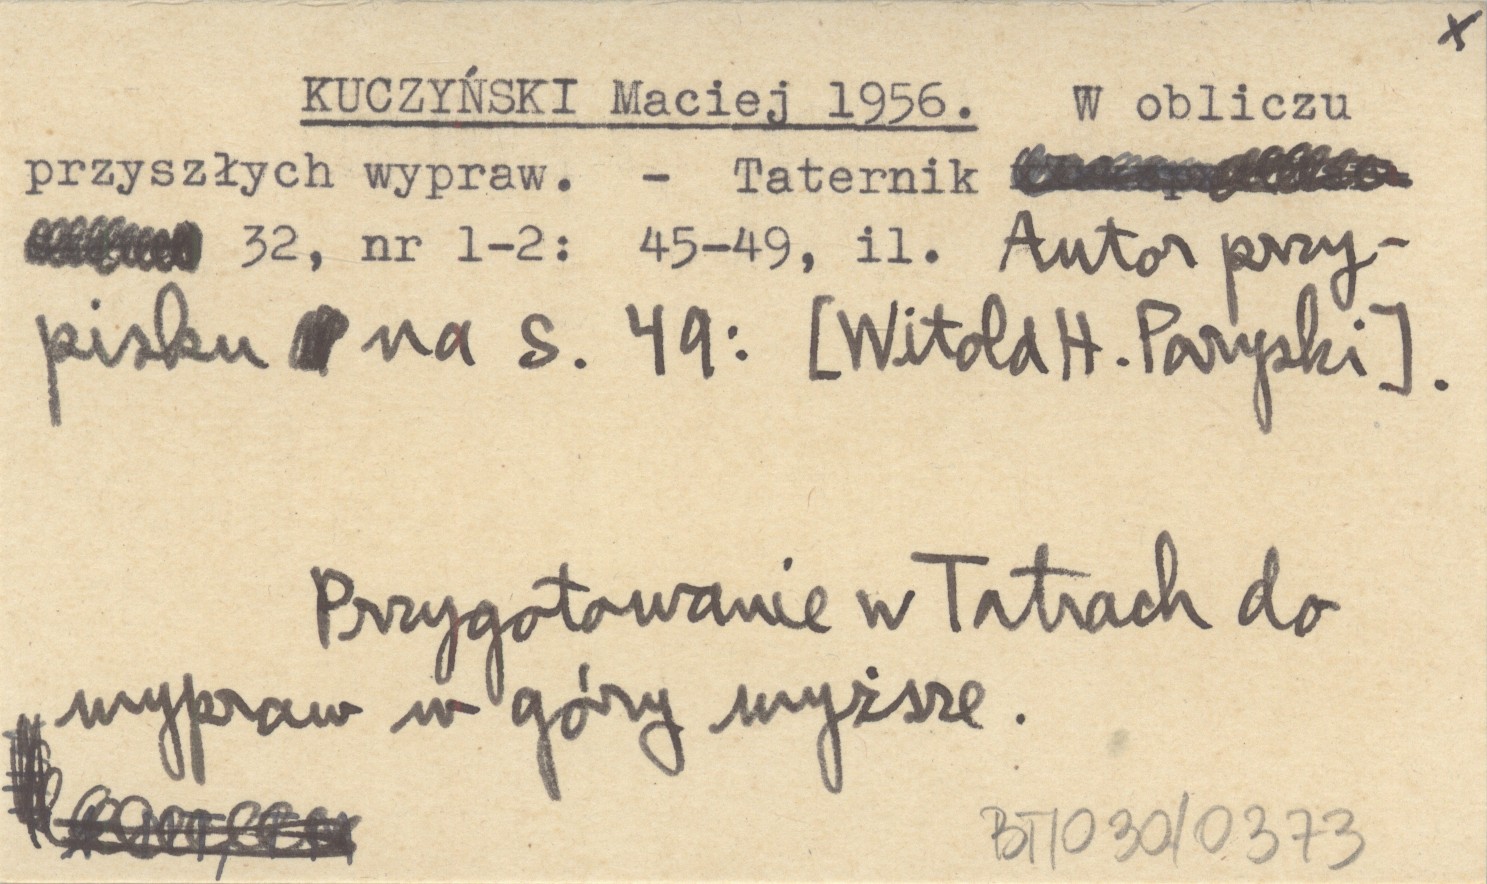 x
KUCZYŃSKI Maciej 1956. W obliczu
przyszłych wypraw. - Taternik
32, nr 1-2: 45-49, il. Autor przy-
pisku na s. 49: [Witold H. Paryski].
Przygotowanie w Tatrach do
wypraw w góry wyższe.
BT/030/0373